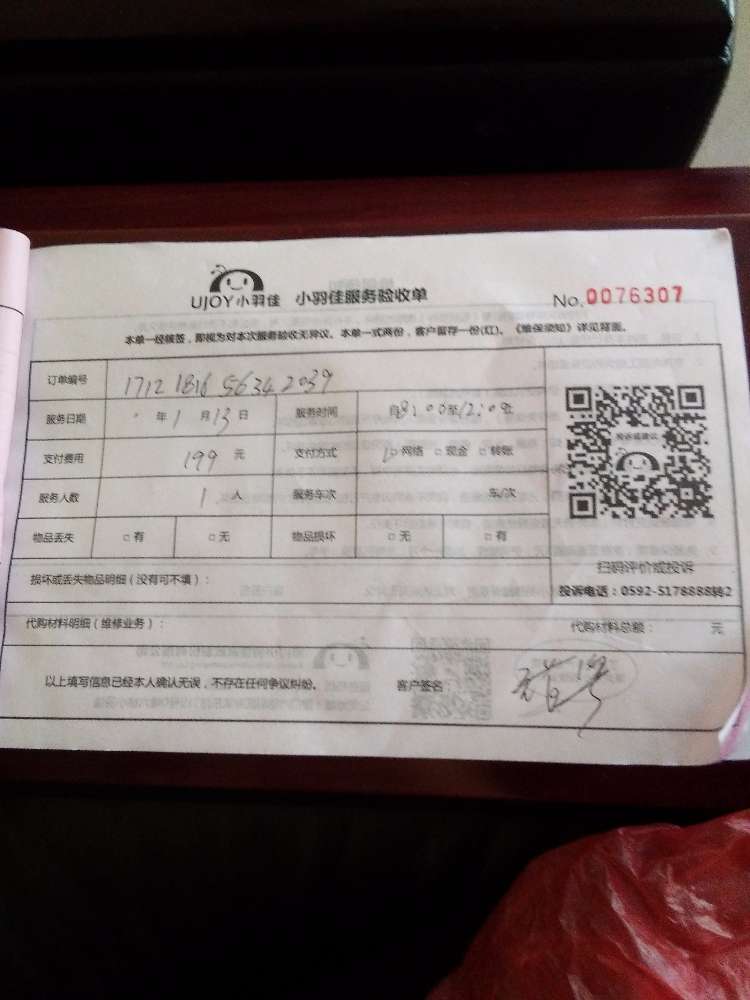 UJOY小羽佳 小羽佳服务验收单 No.0076307
本单一经核签，即视为对本次服务验收无异议。本单一式两份，客户留存一份(红)。《维保须知》详见背面。
订单编号 1712 1816 5634 2039
服务日期 年 1 月 13 日 服务时间 自8:00至12:00止
支付费用 199 元 支付方式 □网络 □现金 □转账
服务人数 1 人 服务车次 车/次
物品丢失 □有 □无 物品损坏 □无 □有
投诉或建议
扫码评价或投诉
损坏或丢失物品明细（没有可不填）： 投诉电话：0592-5178888转2
代购材料明细（维修业务）： 代购材料总额： 元
以上填写信息已经本人确认无误，不存在任何争议纠纷。 客户签名：